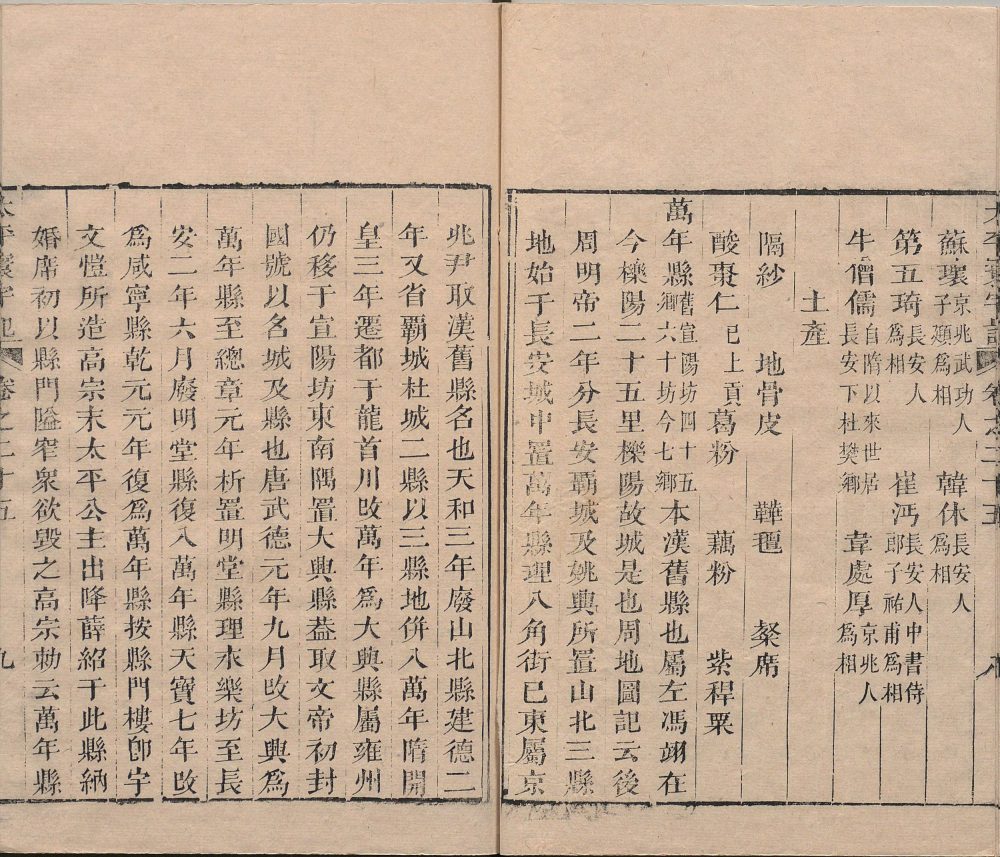 太平寰宇記 卷之二十五 八
蘇瓌京兆武功人子頲爲相 韓休長安人爲相
第五琦長安人爲相 崔沔長安人中書侍郎子祐甫爲相
牛僧儒自隋以來世居長安下杜樊鄉 韋處厚京兆人爲相
土產
隔紗 地骨皮 鞾氊 粲席
酸棗仁已上貢 葛粉 藕粉 紫稈粟
萬年縣舊宣陽坊四十五鄉六十坊今七鄉本漢舊縣也屬左馮翊在
今櫟陽二十五里櫟陽故城是也周地圖記云後
周明帝二年分長安霸城及姚興所置山北三縣
地始于長安城中置萬年縣理八角街已東屬京
兆尹取漢舊縣名也天和三年廢山北縣建德二
年又省霸城杜城二縣以三縣地併入萬年隋開
皇三年遷都于龍首川改萬年爲大興縣屬雍州
仍移于宣陽坊東南隅置大興縣葢取文帝初封
國號以名城及縣也唐武德元年九月改大興爲
萬年縣至總章元年析置明堂縣理永樂坊至長
安二年六月廢明堂縣復入萬年縣天寶七年改
爲咸寧縣乾元元年復爲萬年縣按縣門樓卽宇
文愷所造高宗末太平公主出降薛紹于此縣納
婚席初以縣門隘窄衆欲毀之高宗勅云萬年縣
太平寰宇記 卷之二十五 九